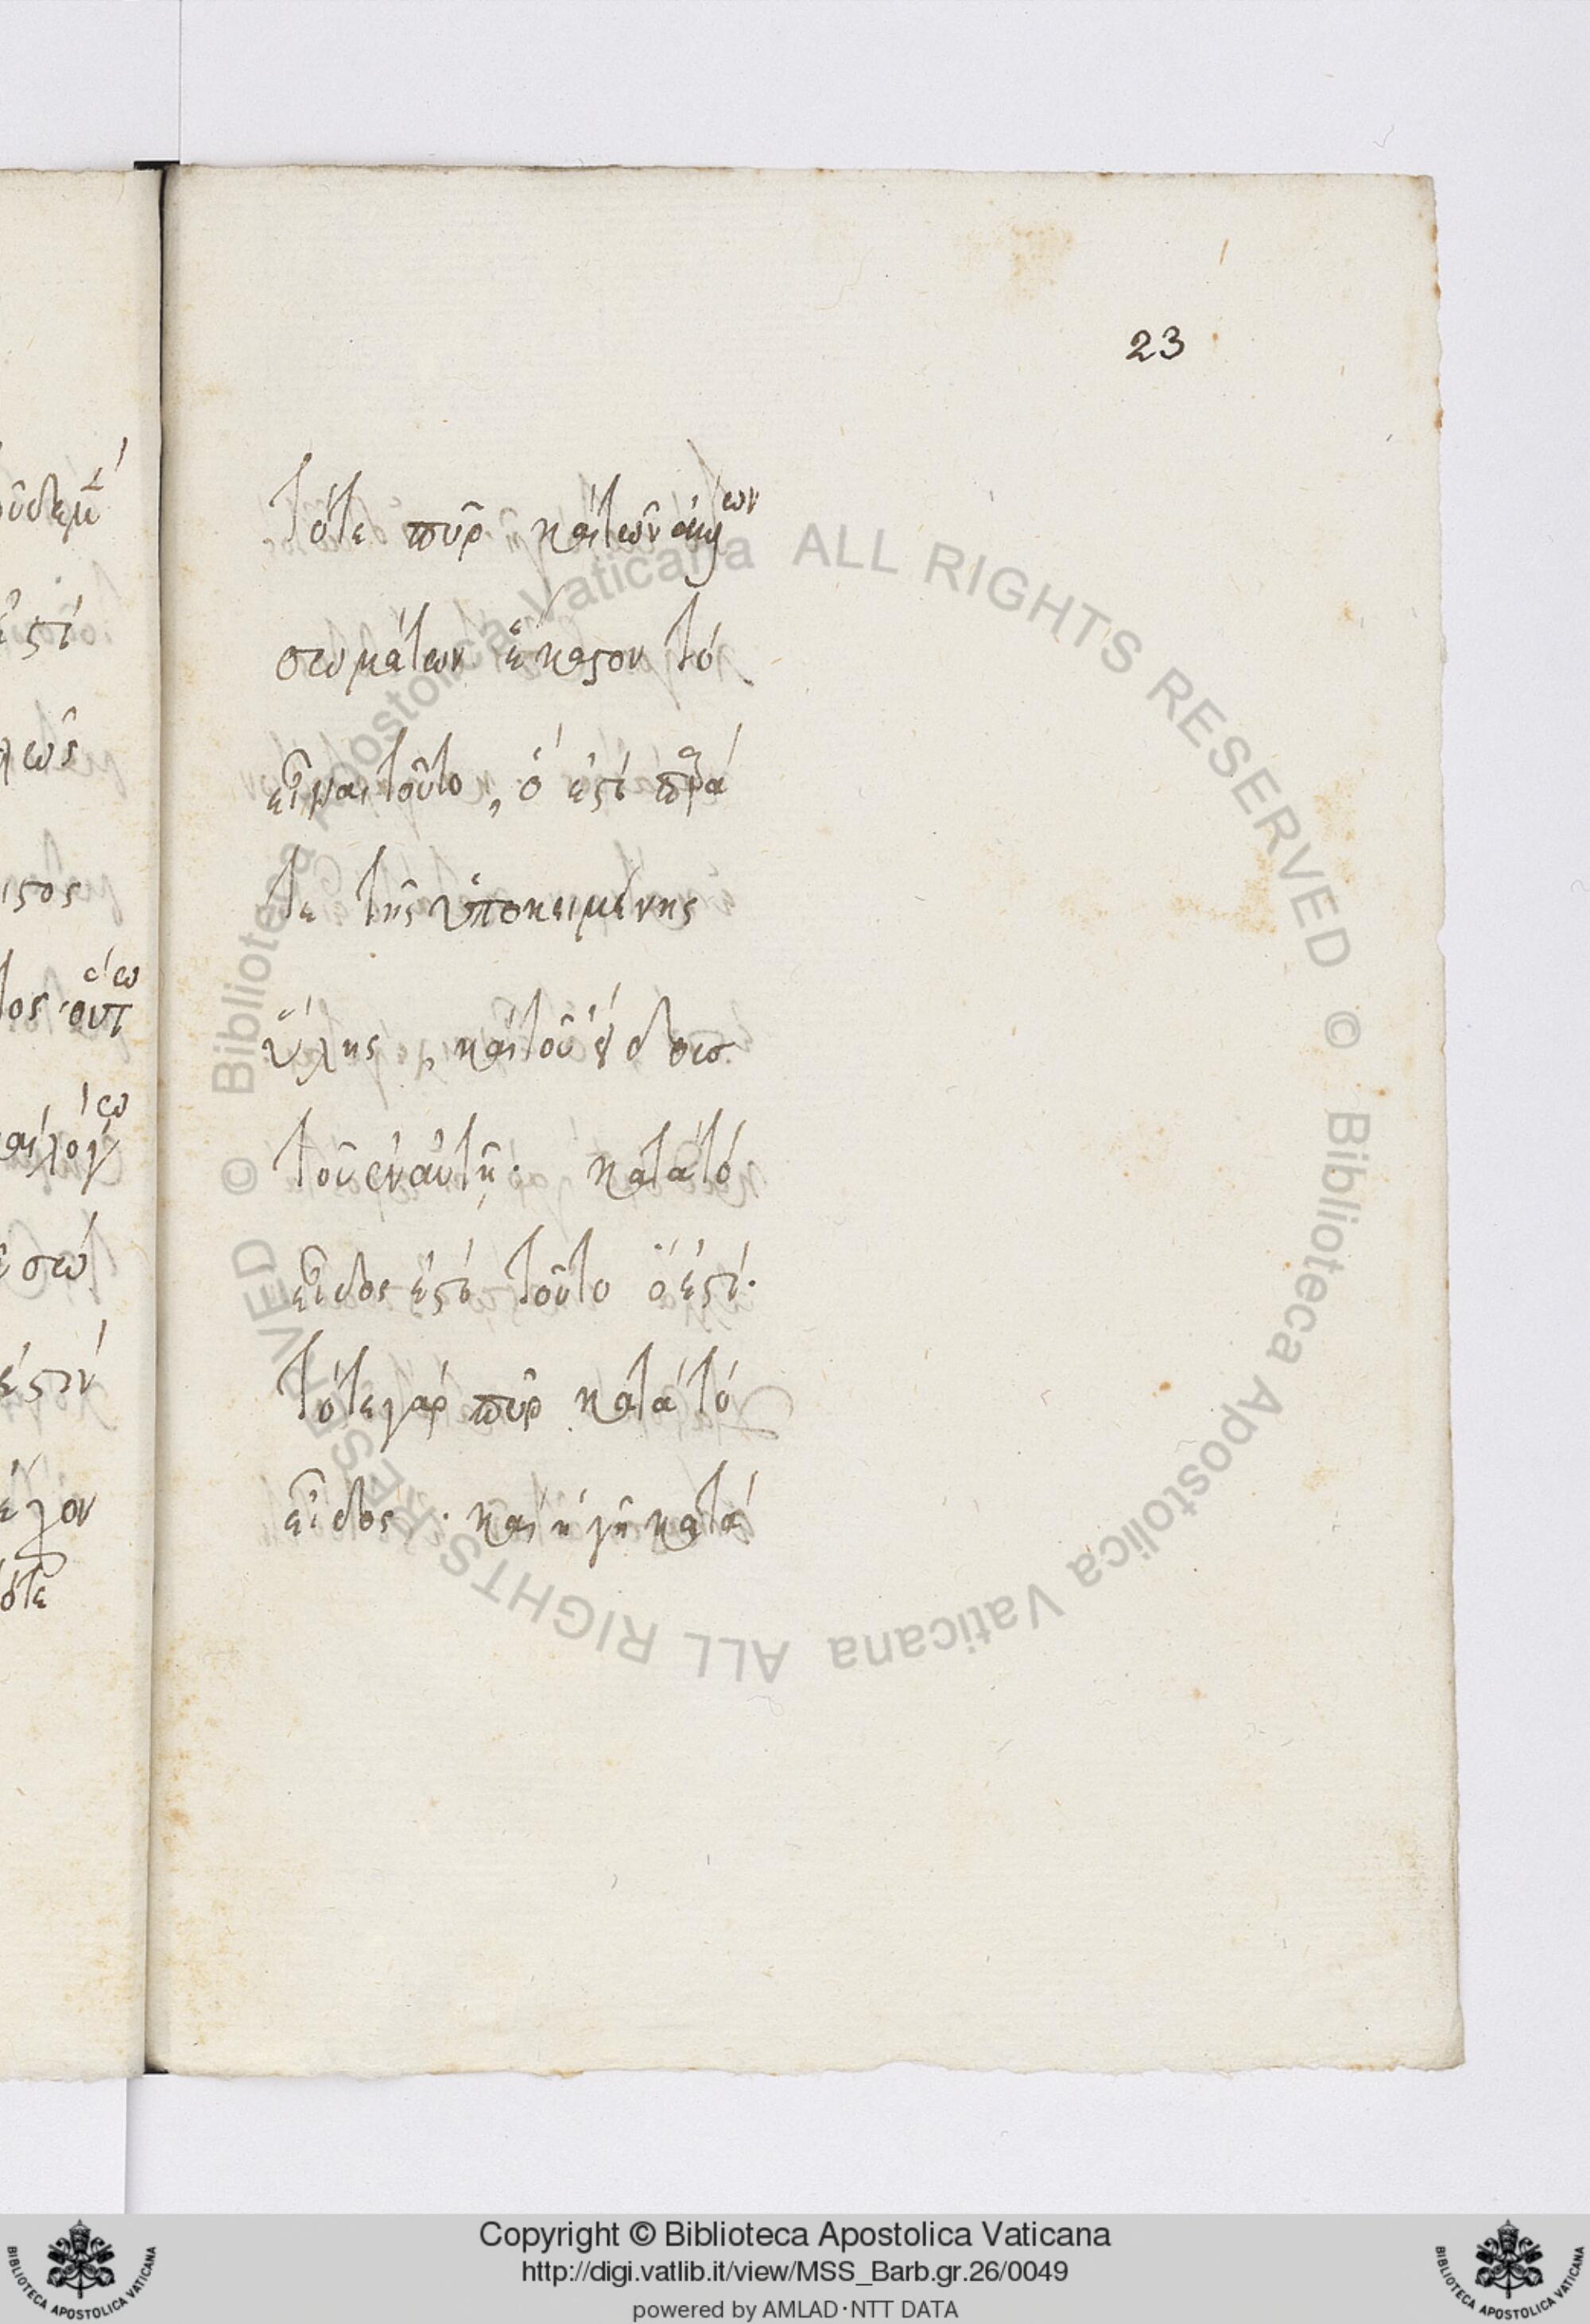 23
τότε πῦρ καὶ τῶν ἁπλῶν
σωμάτων ἕκαστον τὸ
εἶναι τοῦτο, ὅ ἐστι παρά
τε τῆς ὑποκειμένης
ὕλης, καὶ τοῦ εἴδους
τοῦ ἐν αὐτῇ. κατὰ τὸ
εἶδος ἐστὶ τοῦτο ὅ ἐστί.
τότε γὰρ πῦρ κατὰ τὸ
εἶδος. καὶ ἡ γῆ κατὰ
ἐστί
ἐστιν
© Biblioteca Apostolica Vaticana ALL RIGHTS RESERVED © Biblioteca Apostolica Vaticana ALL RIGHTS RESERVED
Copyright © Biblioteca Apostolica Vaticana
http://digi.vatlib.it/view/MSS_Barb.gr.26/0049
powered by AMLAD·NTT DATA
BIBLIOTECA APOSTOLICA VATICANA
BIBLIOTECA APOSTOLICA VATICANA